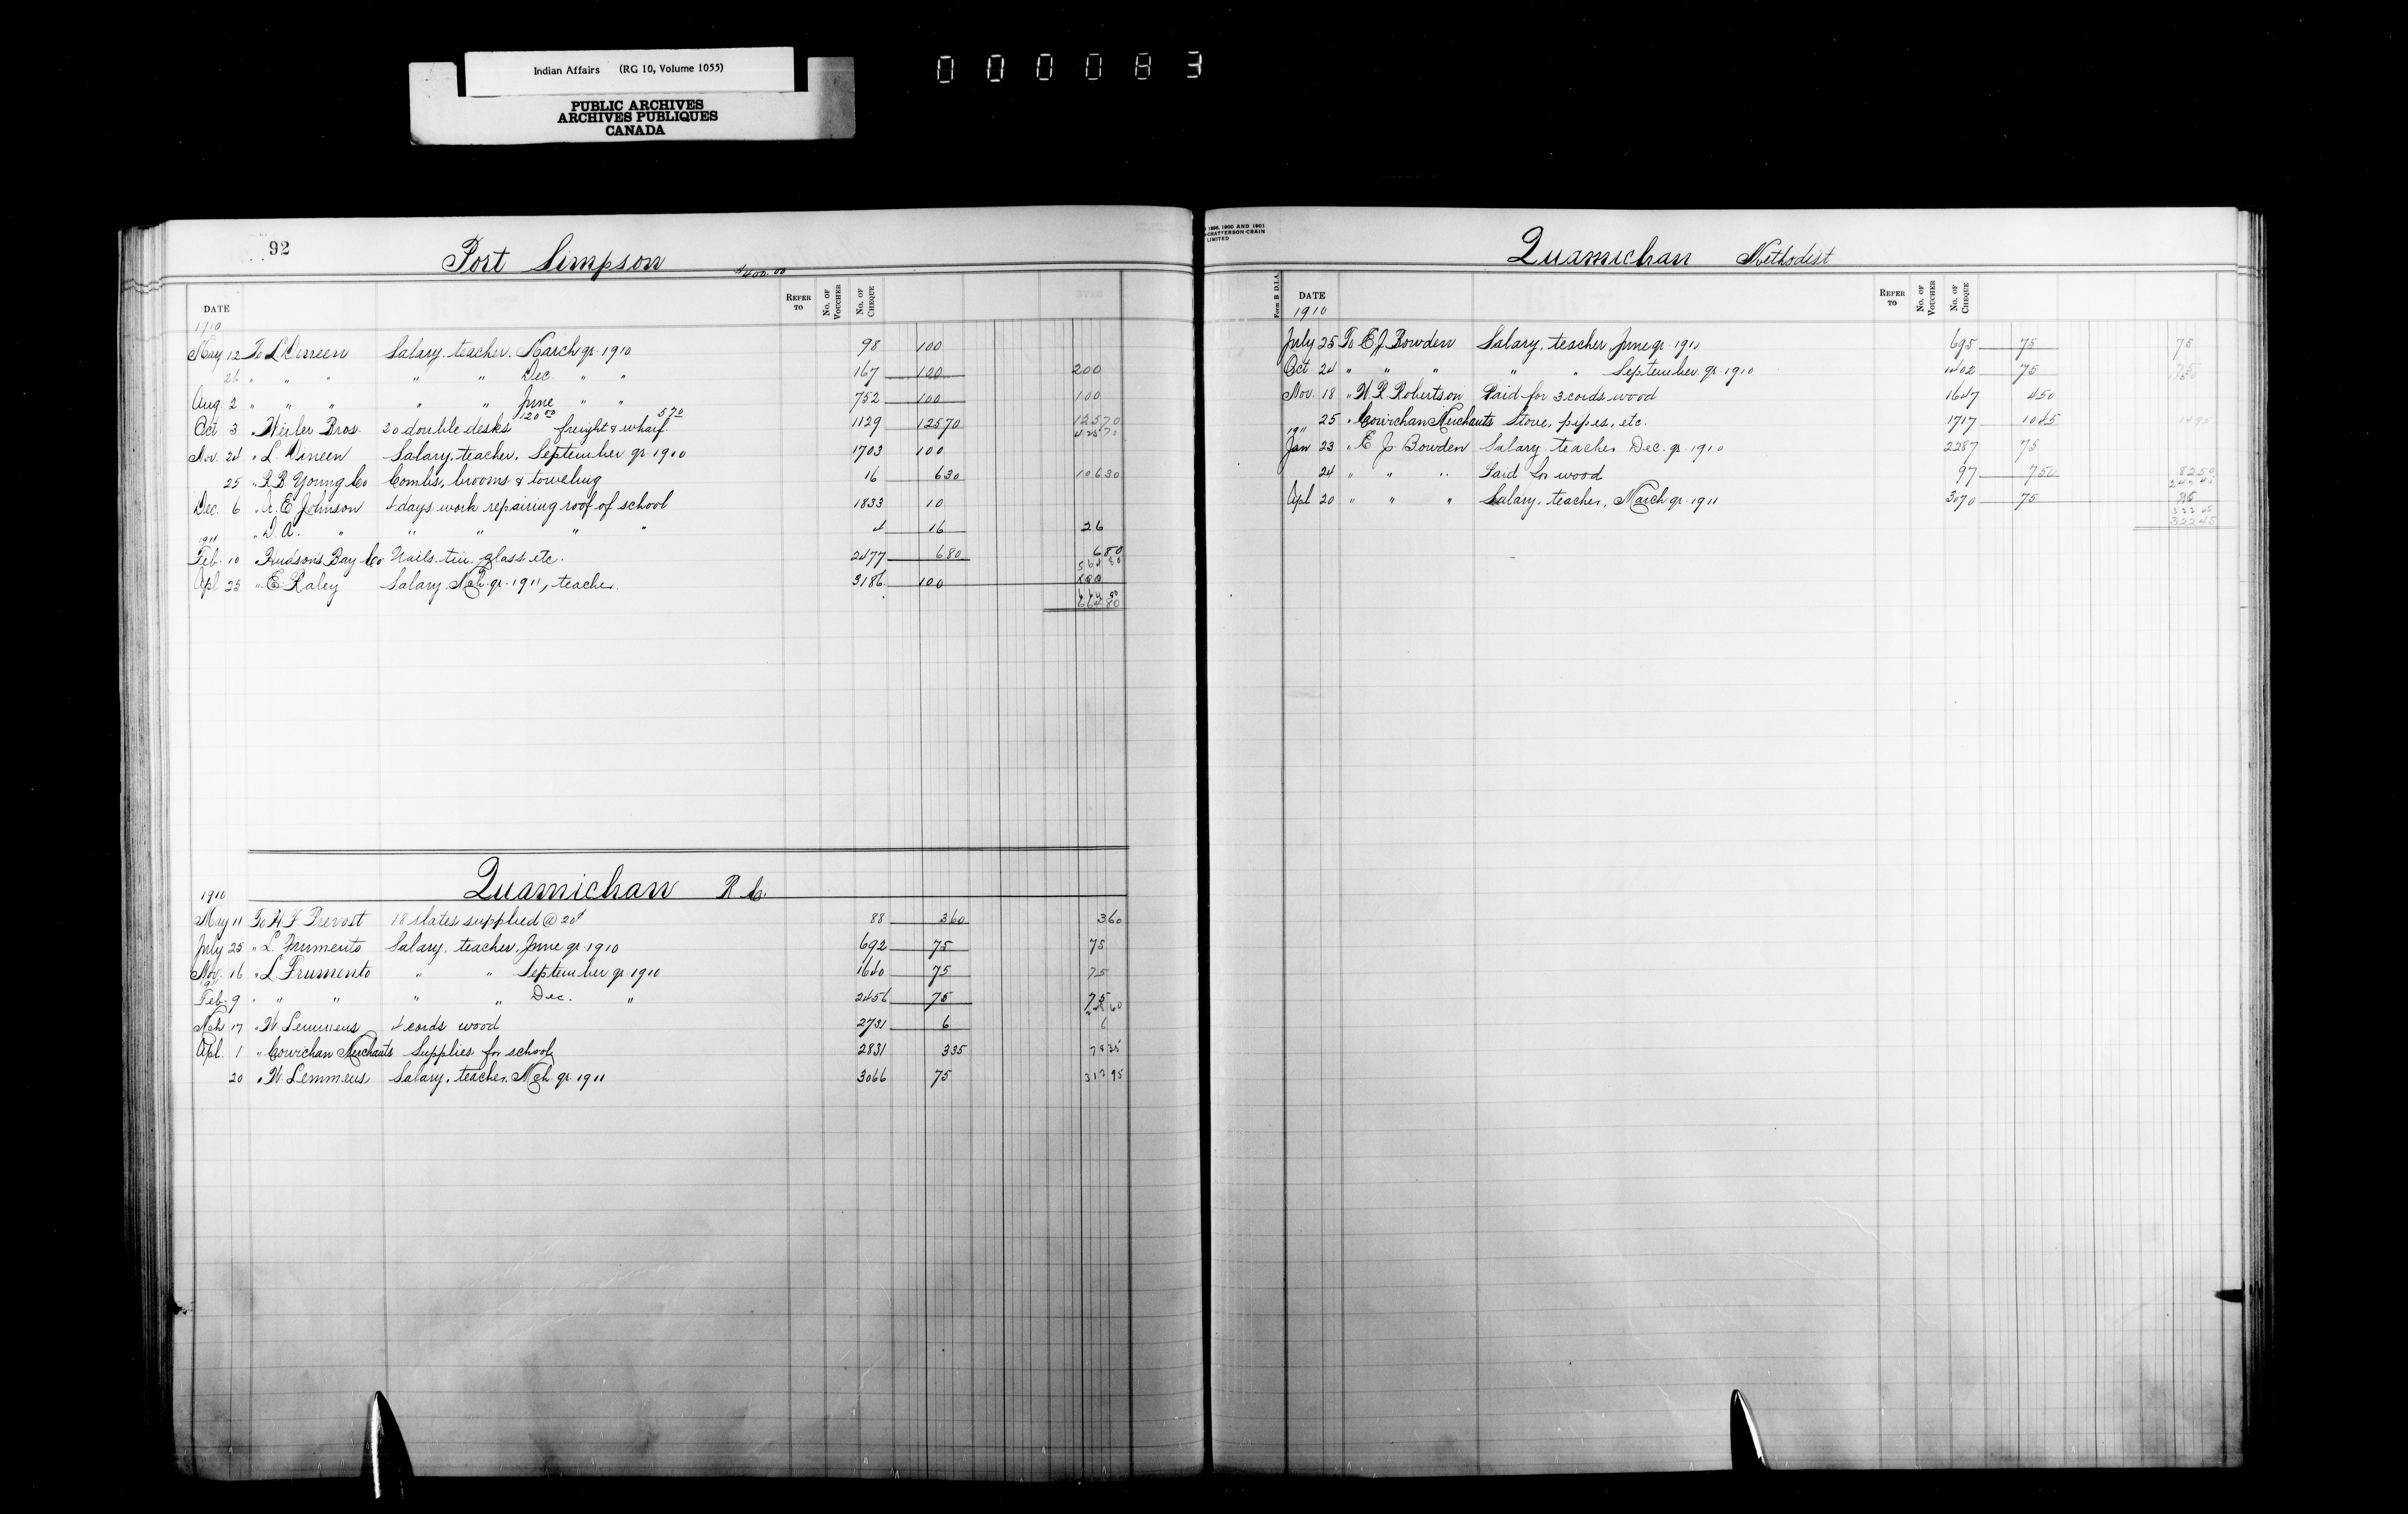 Indian Affairs (RG 10, Volume 1055)
PUBLIC ARCHIVES
ARCHIVES PUBLIQUES
CANADA
000083
92
Port Simpson $400.00
DATE REFER TO No. OF VOUCHER No. OF CHEQUE
1910
May 12 To L Dineen Salary, teacher, March qr. 1910 98 100
26 " " " " " Dec. " " 167 100 200
Aug. 2 " " " " " June " " 752 100 100
Oct 3 " Weiler Bros. 20 double desks 120 00 freight & wharf 5 70 1129 125 70 125 70
425 70
Nov. 24 " L. Dineen Salary, teacher, September qr. 1910 1703 100
25 " R. B. Young Co Combs, brooms & toweling 16 6 30 106 30
Dec. 6 " R. E. Johnson 4 days work repairing roof of school 1833 10
" D. A. " " " " " 4 16 26
1911
Feb. 10 Hudson's Bay Co. Nails, tin, glass etc. 2477 6 80 6 80
564 80
Apl 25 " E. Raley Salary Mch. qr. 1911, teacher. 3186 100 100
664 80
664 80
Quamichan R. C.
1910
May 11 To H. F. Prevost 18 slates supplied @ 20¢ 88 3 60 3 60
July 25 " L. Frumento Salary, teacher, June qr. 1910 692 75 75
Nov. 16 " L. Frumento " " September qr. 1910 1640 75 75
1911
Feb. 9 " " " " " Dec. " 2456 75 75
228 60
Mch 17 " W. Lemmens 4 cords wood 2731 6 6
Apl. 1 " Cowichan Merchants Supplies for school 2831 3 35 78 35
20 " W. Lemmens Salary, teacher, Mch. qr. 1911 3066 75 312 95
1898, 1900 AND 1901
CHATTERSON-CRAIN
LIMITED
Quamichan Methodist
Form B D.I.A.
DATE REFER TO No. OF VOUCHER No. OF CHEQUE
1910
July 25 To E. J. Bowden Salary, teacher June qr. 1910 695 75 75
Oct. 24 " " " " " September qr. 1910 1402 75 75
150
Nov. 18 " W. R. Robertson Paid for 3 cords wood 1647 4 50
25 " Cowichan Merchants Stove, pipes, etc. 1717 10 45 14 95
1911
Jan 23 " E. J. Bowden Salary, teacher Dec. qr. 1910 2287 75
24 " " " Paid for wood 97 7 50 82 50
247 45
Apl 20 " " " Salary, teacher, March qr. 1911 3070 75 75
322 45
322 45